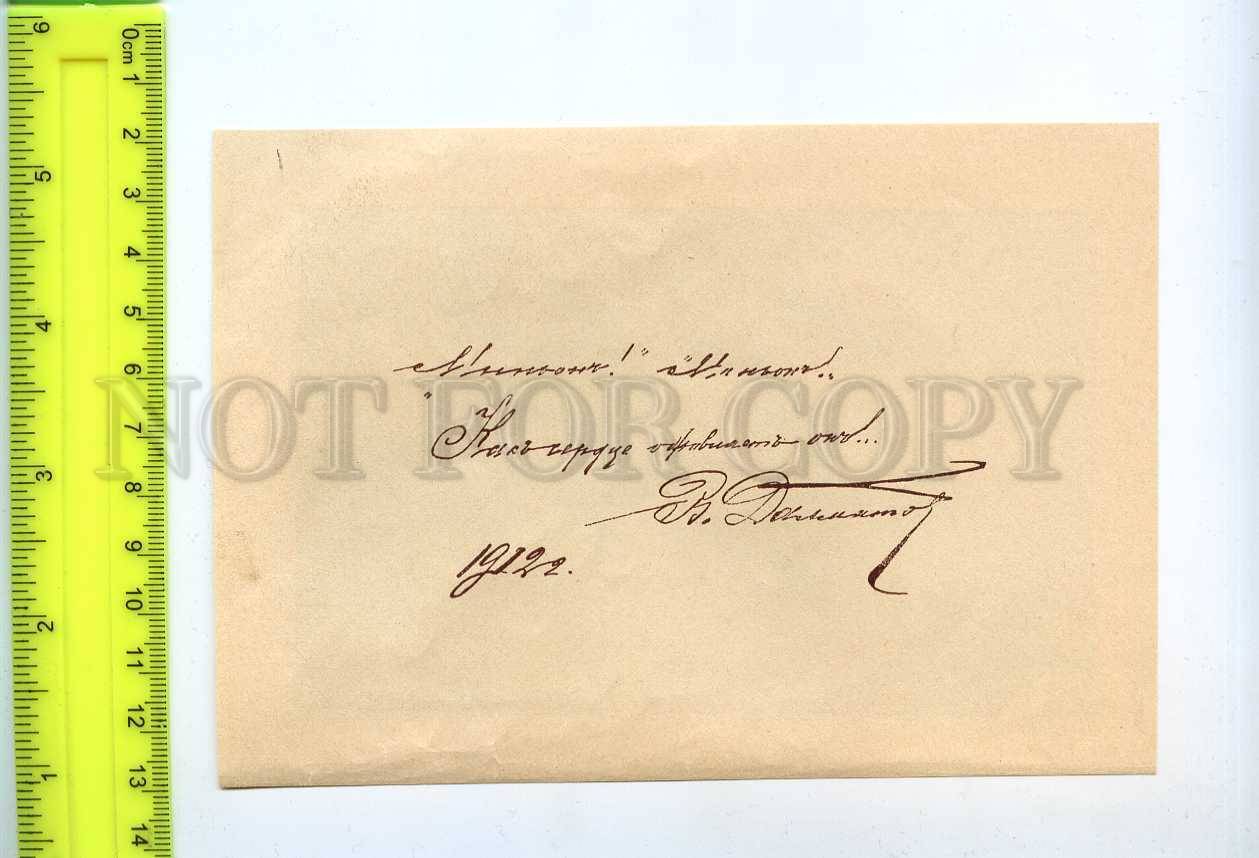 "Миньонъ!" "Миньонъ!.."
Какъ сердце обновляетъ онъ...
В. Далматов
1912 г.
NOT FOR COPY
0cm 1 2 3 4 5 6 7 8 9 10 11 12 13 14
6 5 4 3 2 1